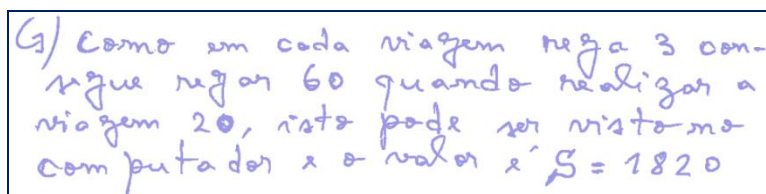 G) Como em cada viagem rega 3 con-
segue regar 60 quando realizar a
viagem 20, isto pode ser visto no
computador e o valor é S = 1820